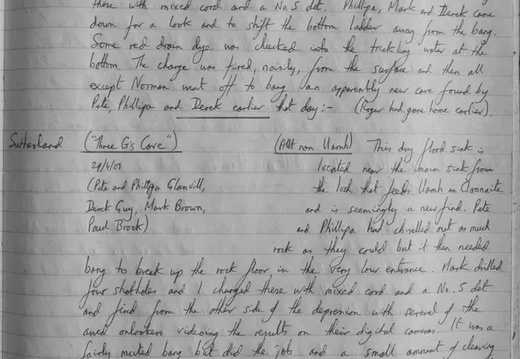 there with mixed cord and a No. 5 det. Phillipa, Mark and Derek came
down for a look and to shift the bottom ladder away from the bang.
Some red drain dye was chucked into the trickling water at the
bottom. The charge was fired, noisily, from the surface and then all
except Norman went off to bang an apparently new cave found by
Pete, Phillipa and Derek earlier that day:- (Roger had gone home earlier).
Sutherland ("Three G's Cave") (Allt nan Uamh) This dry flood sink is
29/4/01 located near the main sink from
(Pete and Phillipa Glanvill, the loch that feeds Uamh an Claonaite
Derek Guy, Mark Brown, and is seemingly a new find. Pete
Paul Brook) and Phillipa had chiselled out as much
rock as they could but it then needed
bang to break up the rock floor in the very low entrance. Mark drilled
four shotholes and I charged these with mixed cord and a No. 5 det
and fired from the other side of the depression with several of the
awed onlookers videoing the results on their digital cameras. It was a
fairly muted bang but did the job and a small amount of clearing